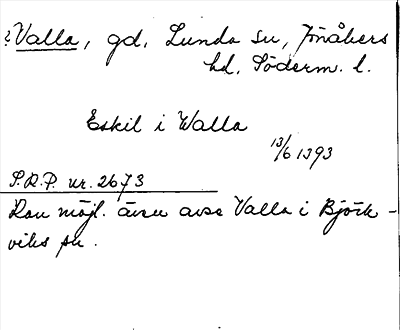 ? Valla, gd, Lunda sn, Jönåkers
hd, Söderm. l.
Eskil i Walla
13/6 1393
S.R.P. nr. 2673
Kan möjl. även avse Valla i Björk-
viks sn.